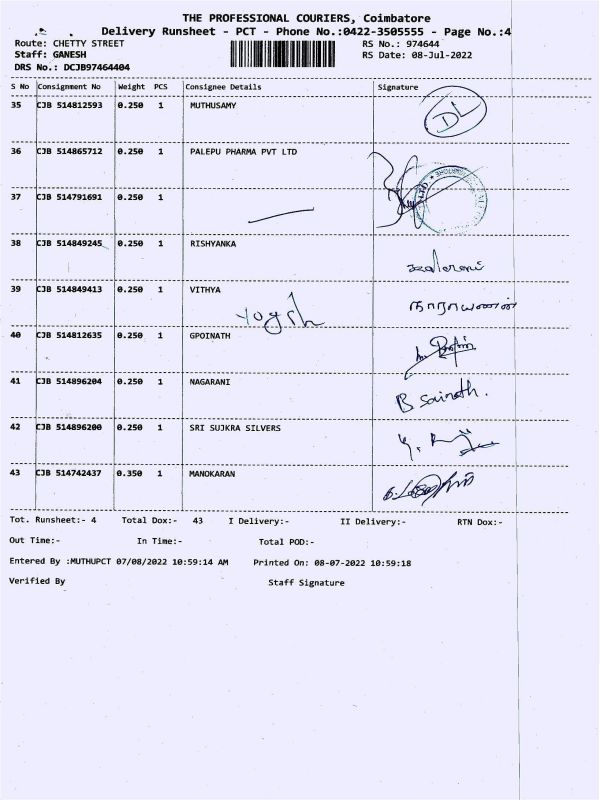 THE PROFESSIONAL COURIERS, Coimbatore
Delivery Runsheet - PCT - Phone No.:0422-3505555 - Page No.:4
Route: CHETTY STREET RS No.: 974644
Staff: GANESH RS Date: 08-Jul-2022
DRS No.: DCJB97464404
S No Consignment No Weight PCS Consignee Details Signature
35 CJB 514812593 0.250 1 MUTHUSAMY DL
36 CJB 514865712 0.250 1 PALEPU PHARMA PVT LTD
37 CJB 514791691 0.250 1
38 CJB 514849245 0.250 1 RISHYANKA
39 CJB 514849413 0.250 1 VITHYA நாராயணன்
Yogsh
40 CJB 514812635 0.250 1 GPOINATH
41 CJB 514896204 0.250 1 NAGARANI B Sainath.
42 CJB 514896200 0.250 1 SRI SUJKRA SILVERS
43 CJB 514742437 0.350 1 MANOKARAN
Tot. Runsheet:- 4 Total Dox:- 43 I Delivery:- II Delivery:- RTN Dox:-
Out Time:- In Time:- Total POD:-
Entered By :MUTHUPCT 07/08/2022 10:59:14 AM Printed On: 08-07-2022 10:59:18
Verified By Staff Signature